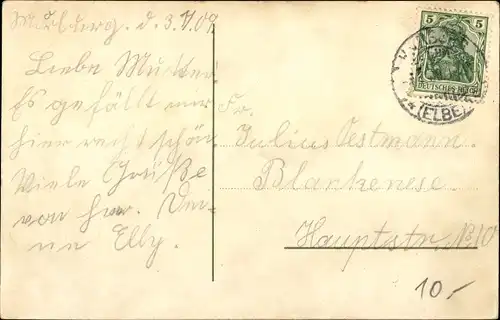 d. 3.V.09
Liebe Mutter
Es gefällt mir
hier recht schön
Viele Grüße
von hier. Dei-
ne Elly.
5 5
DEUTSCHES REICH
(ELBE)
Fr.
Julius Oestmann.
Blankenese
Hauptstr. No 10
10,-